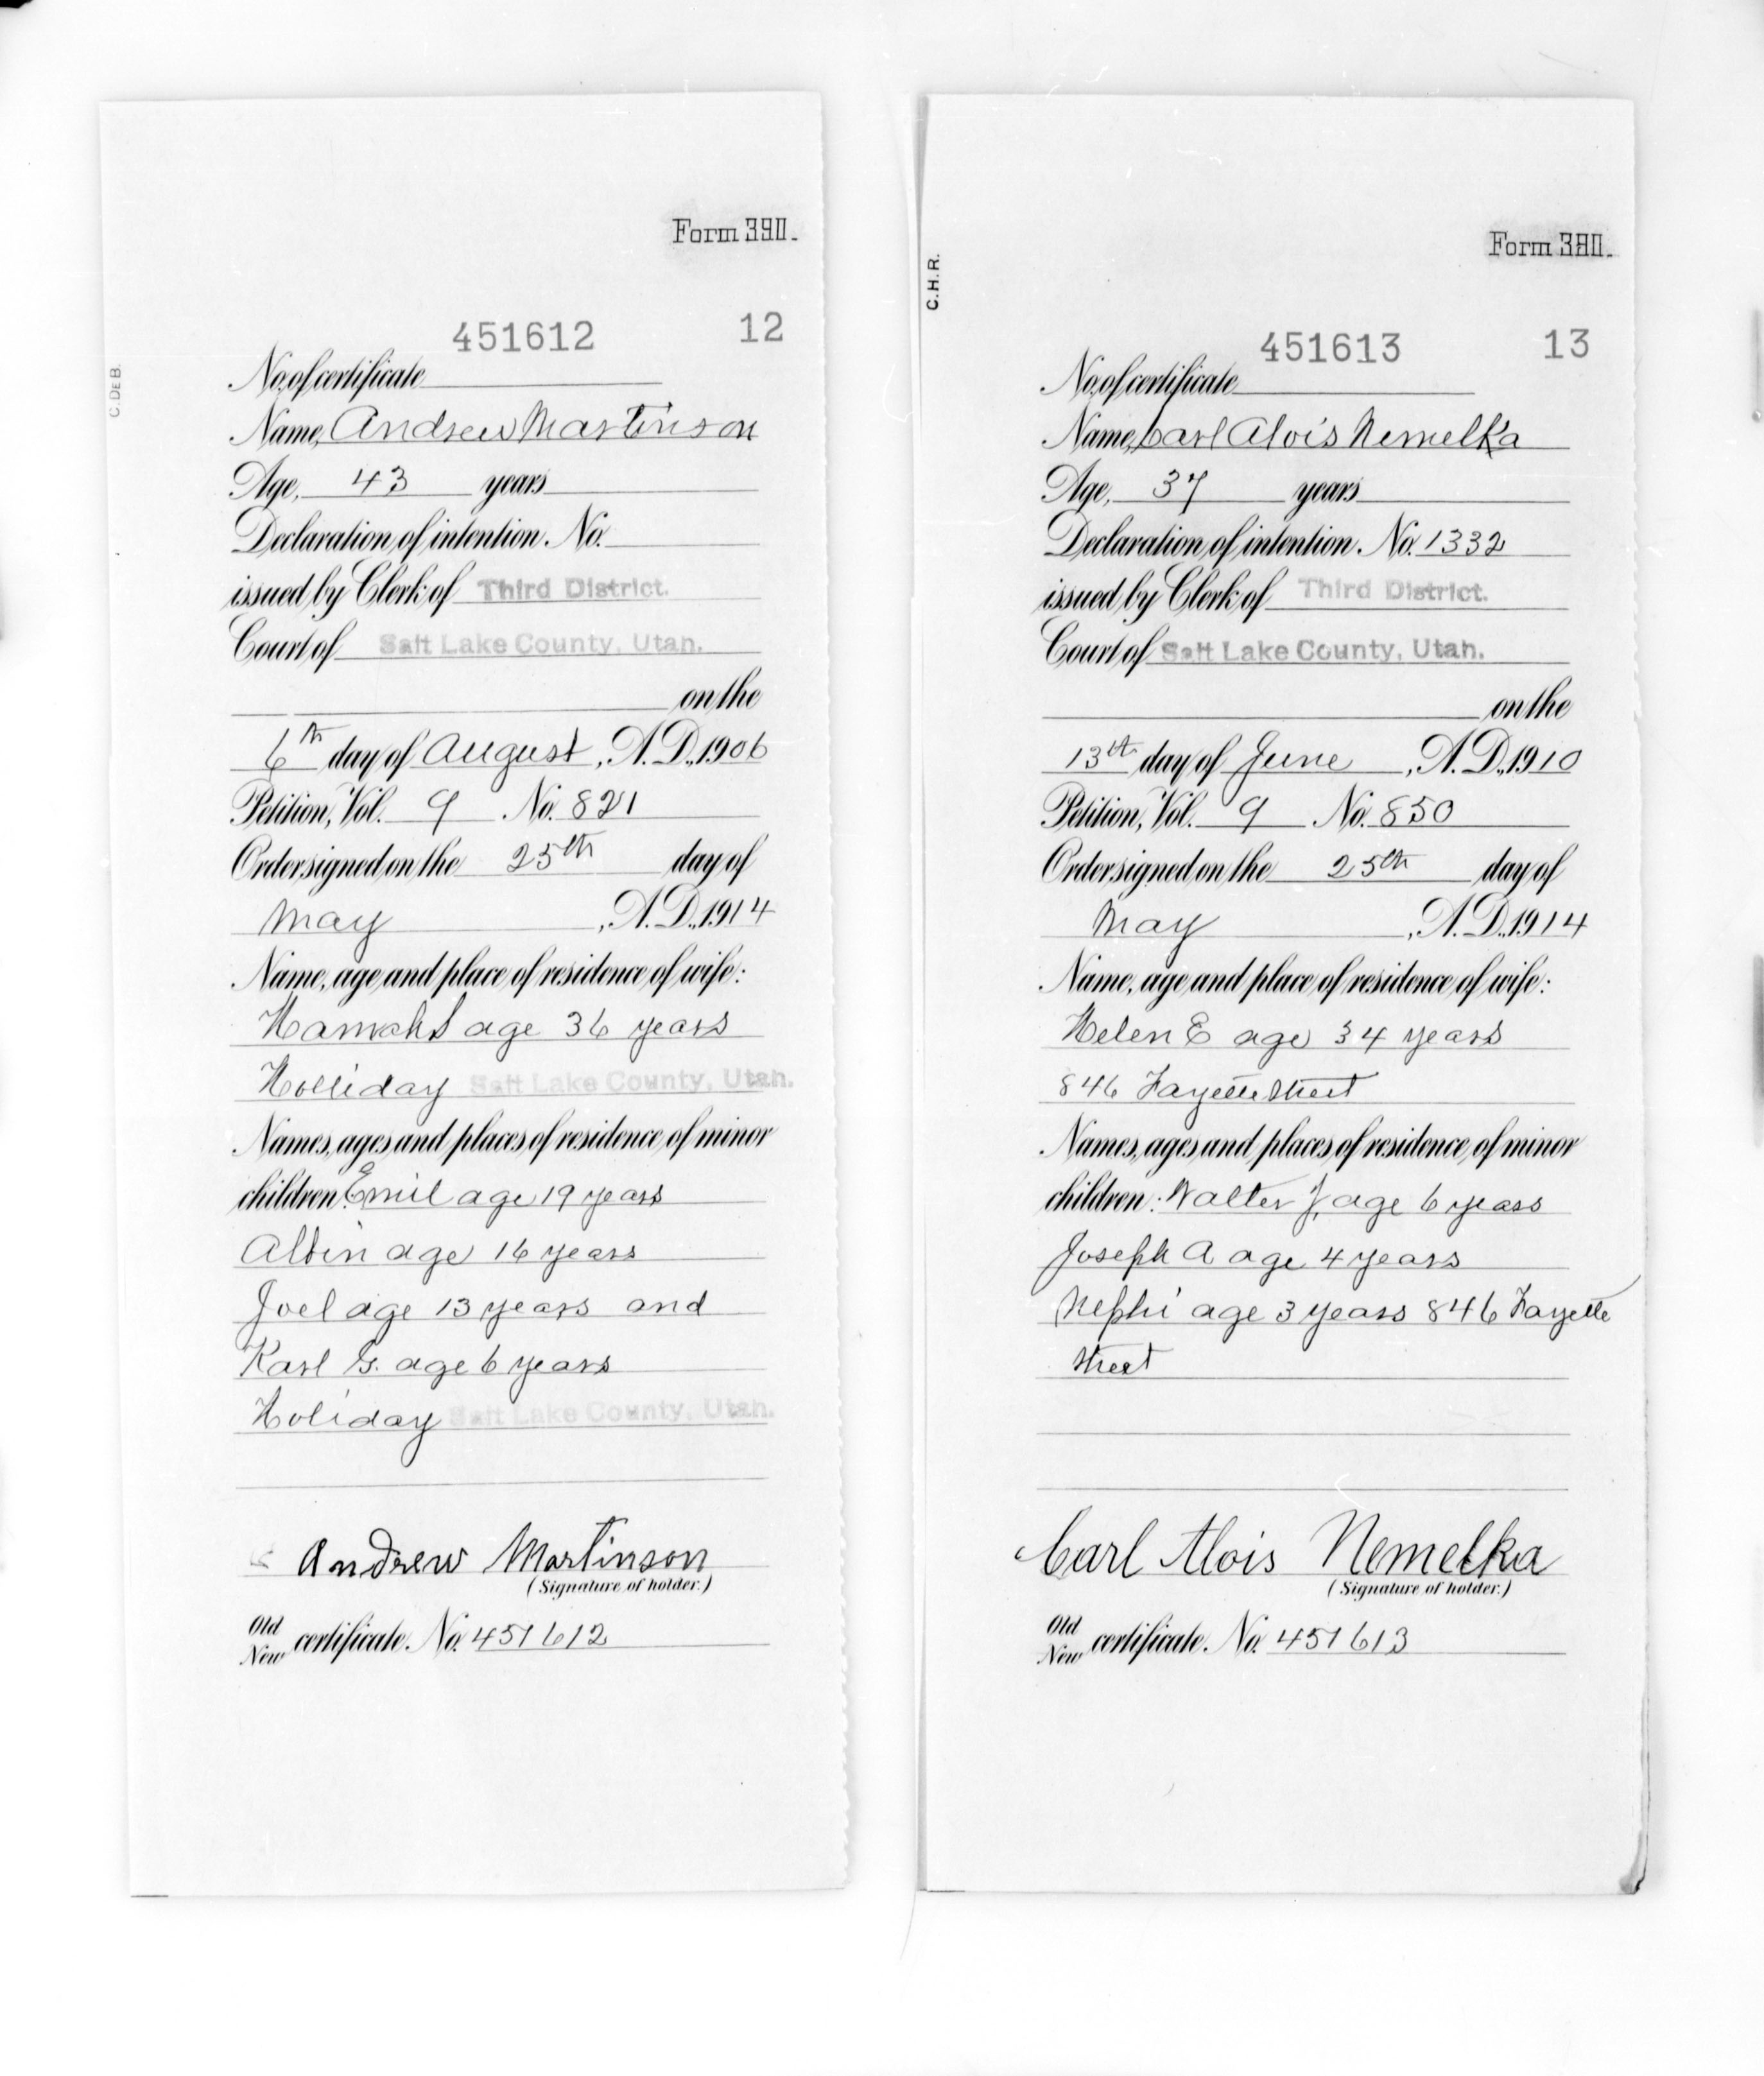 Form 390.
451612 12
C.DEB.
No. of certificate
Name, Andrew Martinson
Age, 43 years
Declaration of intention. No.
issued by Clerk of Third District.
Court of Salt Lake County, Utah.
on the
6th day of August, A.D., 1906
Petition, Vol. 9 No. 821
Order signed on the 25th day of
May, A.D., 1914
Name, age and place of residence of wife:
age 36 years
Holliday Salt Lake County, Utah.
Names, ages and places of residence of minor
children: Emil age 19 years
Albin age 16 years
Joel age 13 years and
Karl G. age 6 years
Holiday Salt Lake County, Utah.
Andrew Martinson
(Signature of holder.)
Old
New certificate. No. 451612
Form 390.
C.H.R.
451613 13
No. of certificate
Name, Carl Alois Nemelka
Age, 37 years
Declaration of intention. No. 1332
issued by Clerk of Third District.
Court of Salt Lake County, Utah.
on the
13th day of June, A.D., 1910
Petition, Vol. 9 No. 850
Order signed on the 25th day of
May, A.D., 1914
Name, age and place of residence of wife:
Helen E age 34 years
846 Fayette Street
Names, ages and places of residence of minor
children: Walter J, age 6 years
Joseph A age 4 years
Nephi age 3 years 846 Fayette
Street
Carl Alois Nemelka
(Signature of holder.)
Old
New certificate. No. 451613